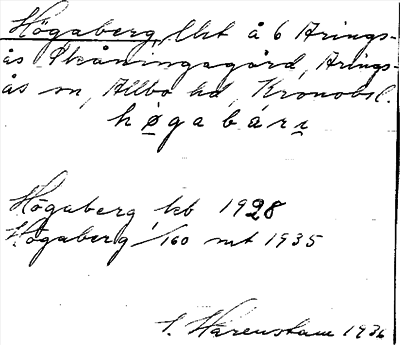 Högaberg, lht å 6 Arings-
ås Skåningagård, Arings-
ås sn, Allbo hd, Kronobl.
høgabárı
Högaberg kb 1928
Högaberg 1/160 mt 1935
S. Härenstam 1936